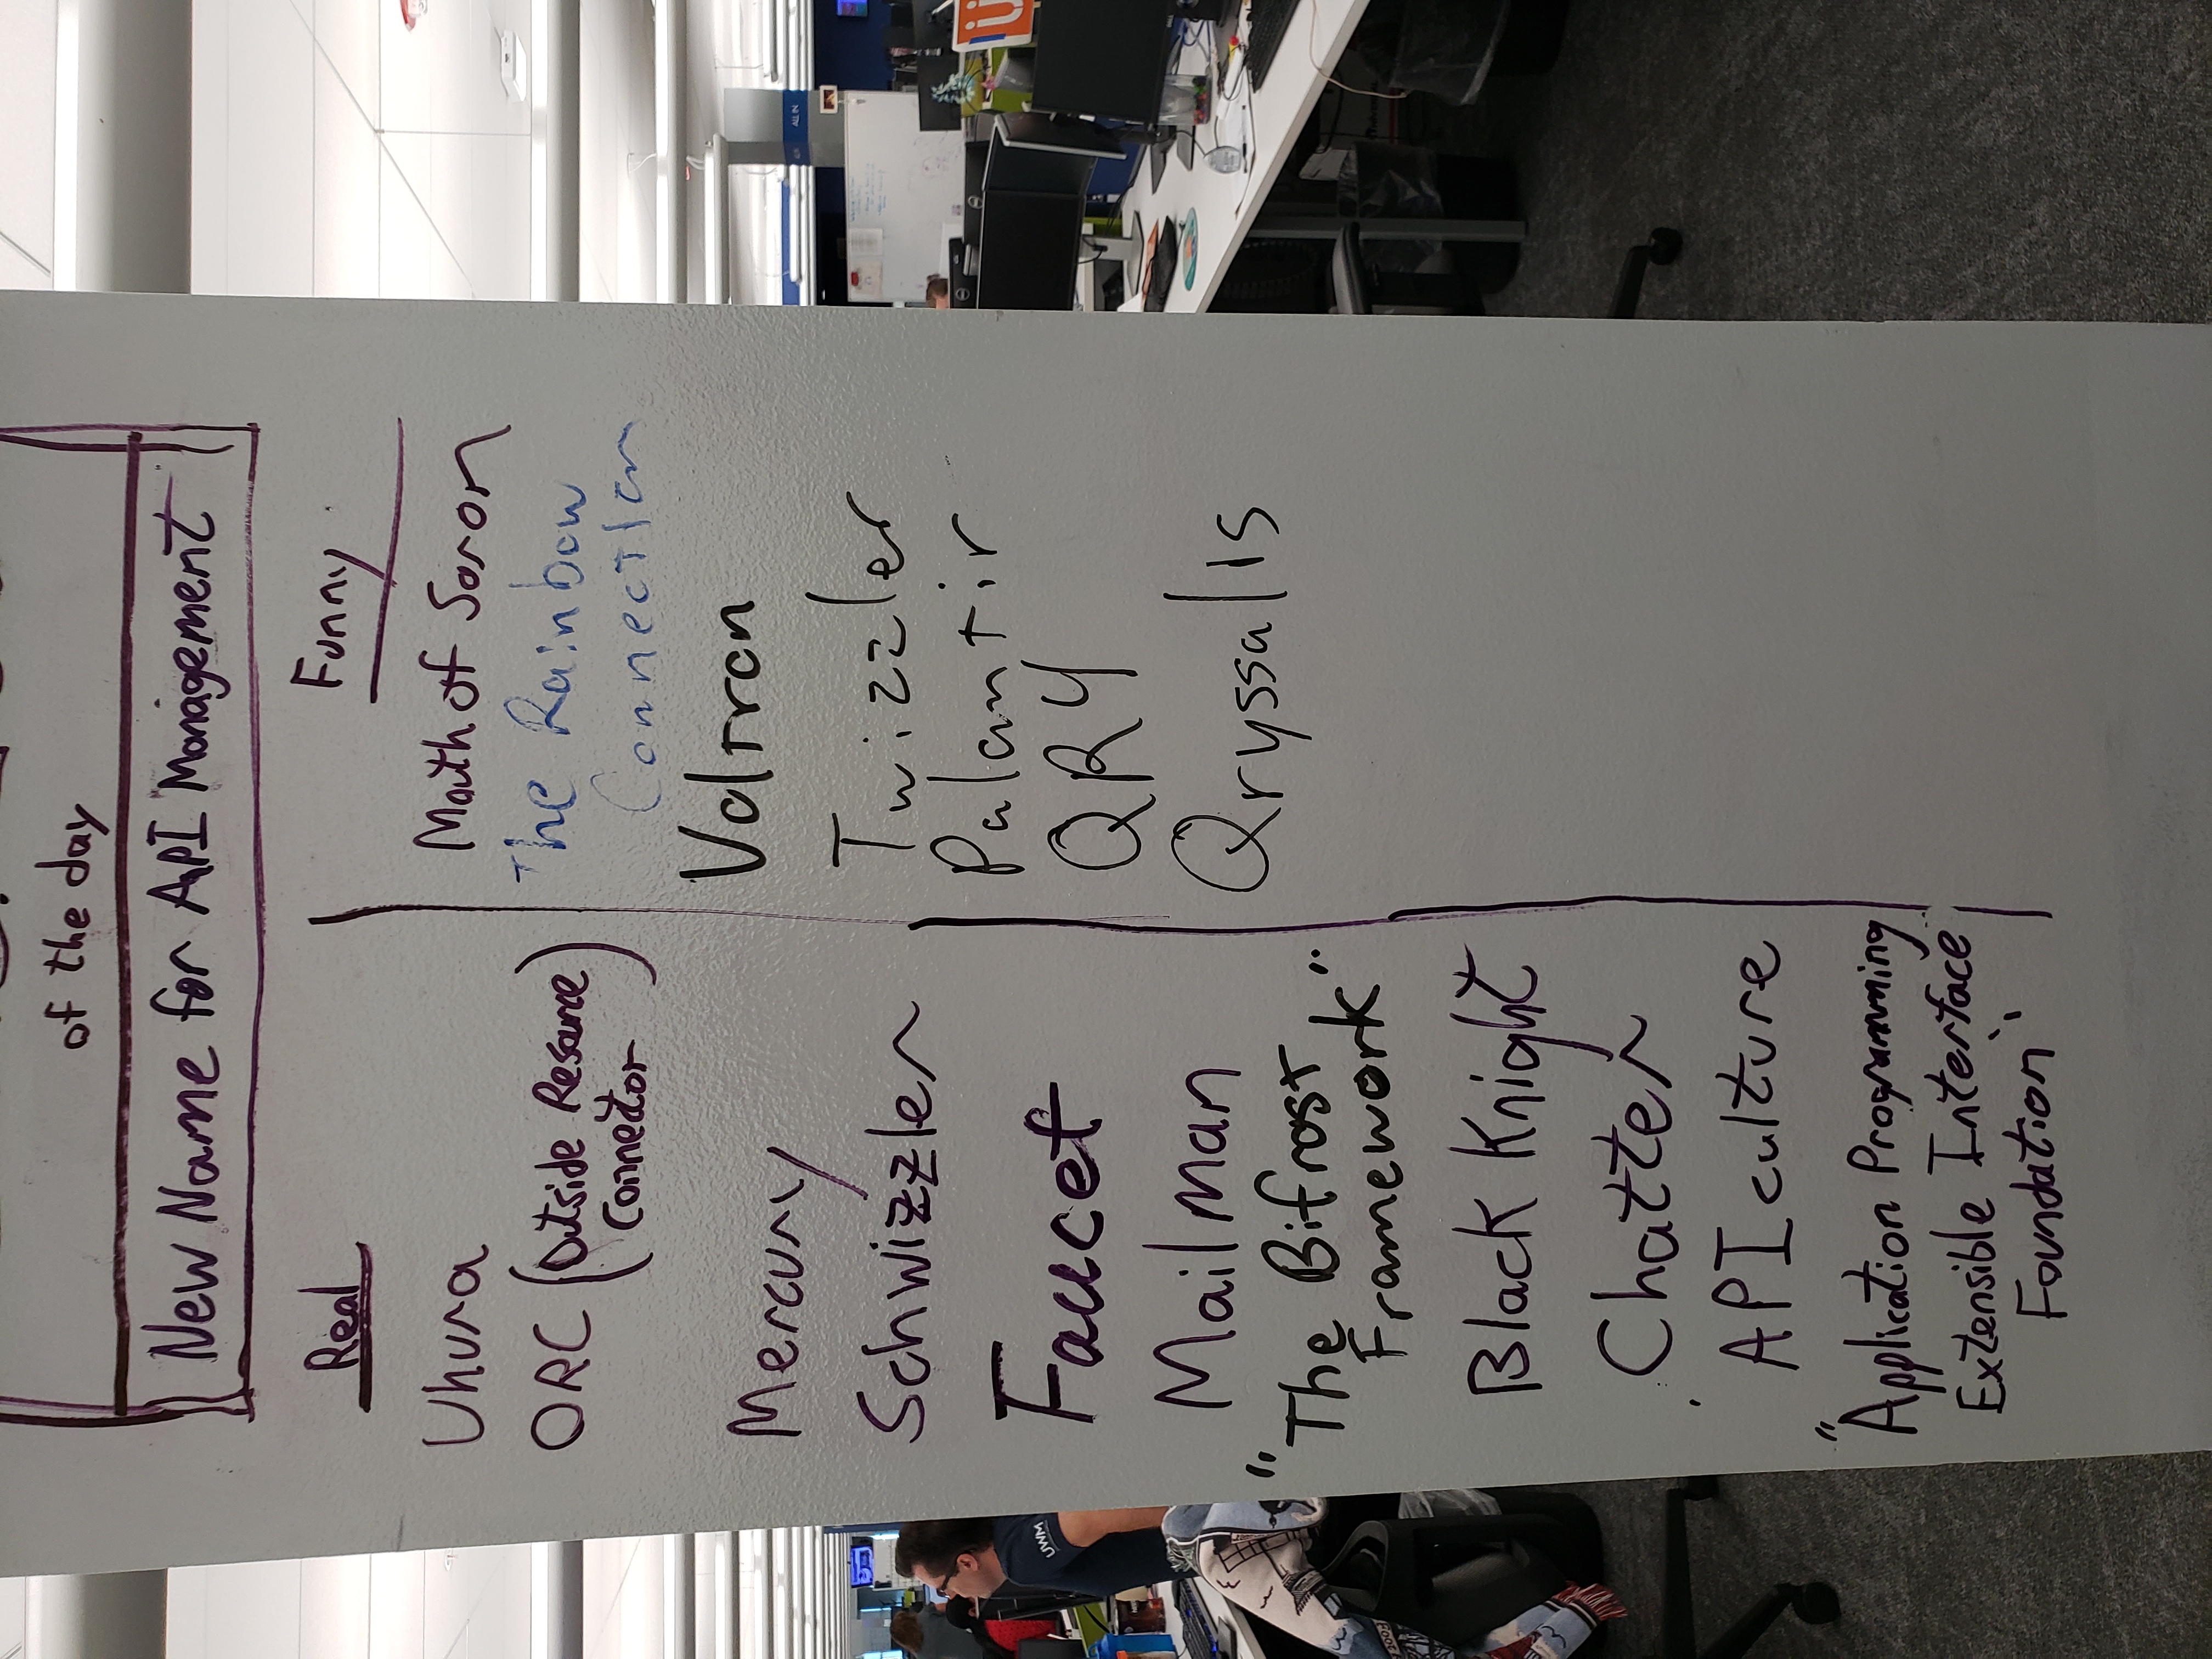 of the day
New Name for API Management
Real
Uhura
ORC (Outside Resource
Connector)
Mercury
Schwizzler
Faucet
Mailman
"The Bifrost
Framework"
Black Knight
Chatter
APIculture
"Application Programming
Extensible Interface
Foundation"
Funny
Mouth of Soron
The Rainbow
Connection
Voltron
Twizzler
Palantir
QR4
Qryssalis
UWM
ALL IN